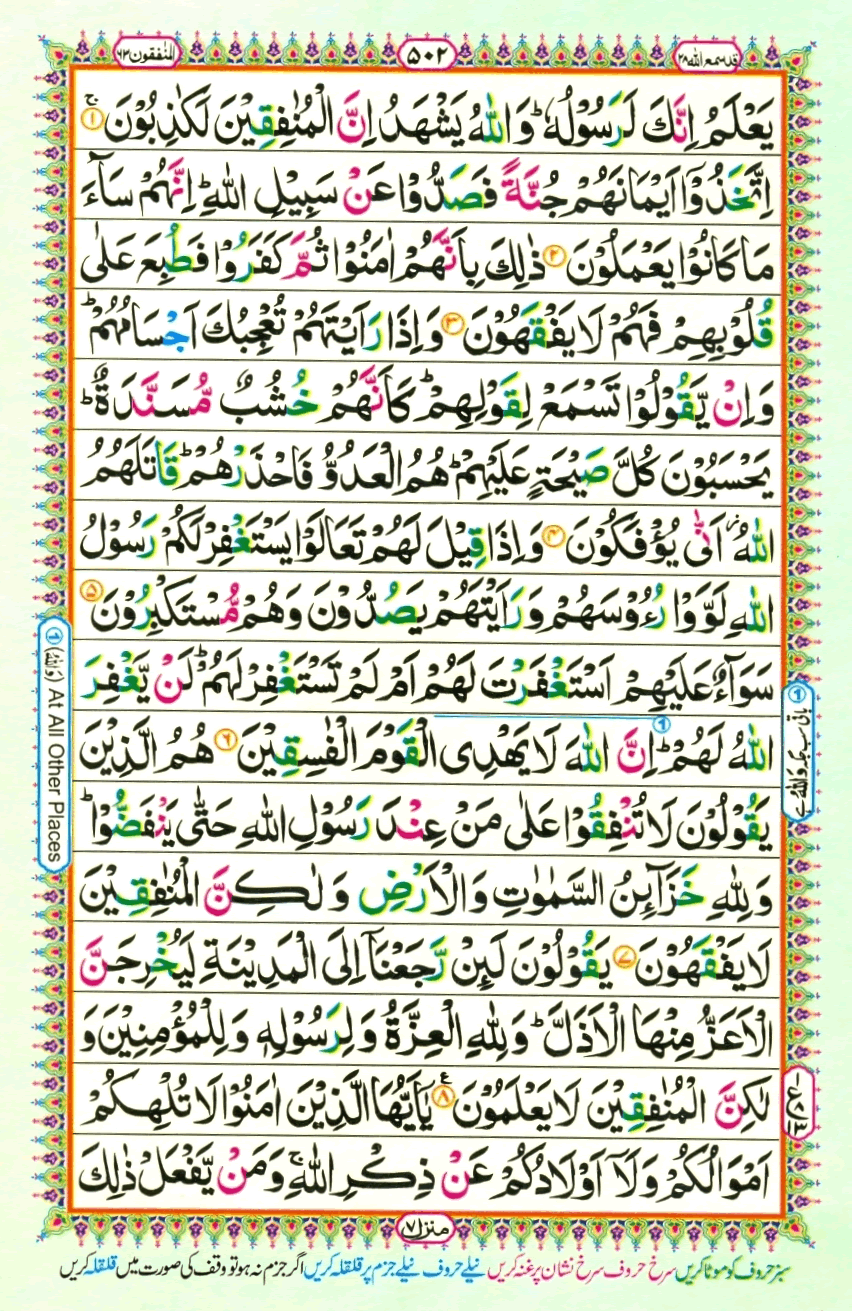 قد سمع الله ٢٨
٥٠٢
المنٰفقون ٦٣
يَعْلَمُ اِنَّكَ لَرَسُوْلُهٗ ؕ وَاللّٰهُ يَشْهَدُ اِنَّ الْمُنٰفِقِيْنَ لَكٰذِبُوْنَ ۚ ۝١
اِتَّخَذُوْۤا اَيْمَانَهُمْ جُنَّةً فَصَدُّوْا عَنْ سَبِيْلِ اللّٰهِ ؕ اِنَّهُمْ سَآءَ
مَا كَانُوْا يَعْمَلُوْنَ ۝٢ ذٰلِكَ بِاَنَّهُمْ اٰمَنُوْا ثُمَّ كَفَرُوْا فَطُبِعَ عَلٰى
قُلُوْبِهِمْ فَهُمْ لَا يَفْقَهُوْنَ ۝٣ وَاِذَا رَاَيْتَهُمْ تُعْجِبُكَ اَجْسَامُهُمْ ؕ
وَاِنْ يَّقُوْلُوْا تَسْمَعْ لِقَوْلِهِمْ ؕ كَاَنَّهُمْ خُشُبٌ مُّسَنَّدَةٌ ؕ
يَحْسَبُوْنَ كُلَّ صَيْحَةٍ عَلَيْهِمْ ؕ هُمُ الْعَدُوُّ فَاحْذَرْهُمْ ؕ قَاتَلَهُمُ
اللّٰهُ ؗ اَنّٰى يُؤْفَكُوْنَ ۝٤ وَاِذَا قِيْلَ لَهُمْ تَعَالَوْا يَسْتَغْفِرْ لَكُمْ رَسُوْلُ
اللّٰهِ لَوَّوْا رُءُوْسَهُمْ وَرَاَيْتَهُمْ يَصُدُّوْنَ وَهُمْ مُّسْتَكْبِرُوْنَ ۝٥
سَوَآءٌ عَلَيْهِمْ اَسْتَغْفَرْتَ لَهُمْ اَمْ لَمْ تَسْتَغْفِرْ لَهُمْ ؕ لَنْ يَّغْفِرَ
اللّٰهُ لَهُمْ ؕ اِنَّ اللّٰهَ لَا يَهْدِى الْقَوْمَ الْفٰسِقِيْنَ ۝٦ هُمُ الَّذِيْنَ
يَقُوْلُوْنَ لَا تُنْفِقُوْا عَلٰى مَنْ عِنْدَ رَسُوْلِ اللّٰهِ حَتّٰى يَنْفَضُّوْا ؕ
وَلِلّٰهِ خَزَآئِنُ السَّمٰوٰتِ وَالْاَرْضِ وَلٰكِنَّ الْمُنٰفِقِيْنَ
لَا يَفْقَهُوْنَ ۝٧ يَقُوْلُوْنَ لَئِنْ رَّجَعْنَاۤ اِلَى الْمَدِيْنَةِ لَيُخْرِجَنَّ
الْاَعَزُّ مِنْهَا الْاَذَلَّ ؕ وَلِلّٰهِ الْعِزَّةُ وَلِرَسُوْلِهٖ وَلِلْمُؤْمِنِيْنَ وَ
لٰكِنَّ الْمُنٰفِقِيْنَ لَا يَعْلَمُوْنَ ۝٨ ع يٰۤاَيُّهَا الَّذِيْنَ اٰمَنُوْا لَا تُلْهِكُمْ
اَمْوَالُكُمْ وَلَاۤ اَوْلَادُكُمْ عَنْ ذِكْرِ اللّٰهِ ۚ وَمَنْ يَّفْعَلْ ذٰلِكَ
① باقی سب جگہ وَاللهُ ہے
① (وَاللهُ) At All Other Places
منزل ٧
سبز حروف کو موٹا کریں سرخ حروف سرخ نشان پر غنہ کریں نیلے حروف نیلے جزم پر قلقلہ کریں اگر جزم نہ ہو تو وقف کی صورت میں قلقلہ کریں